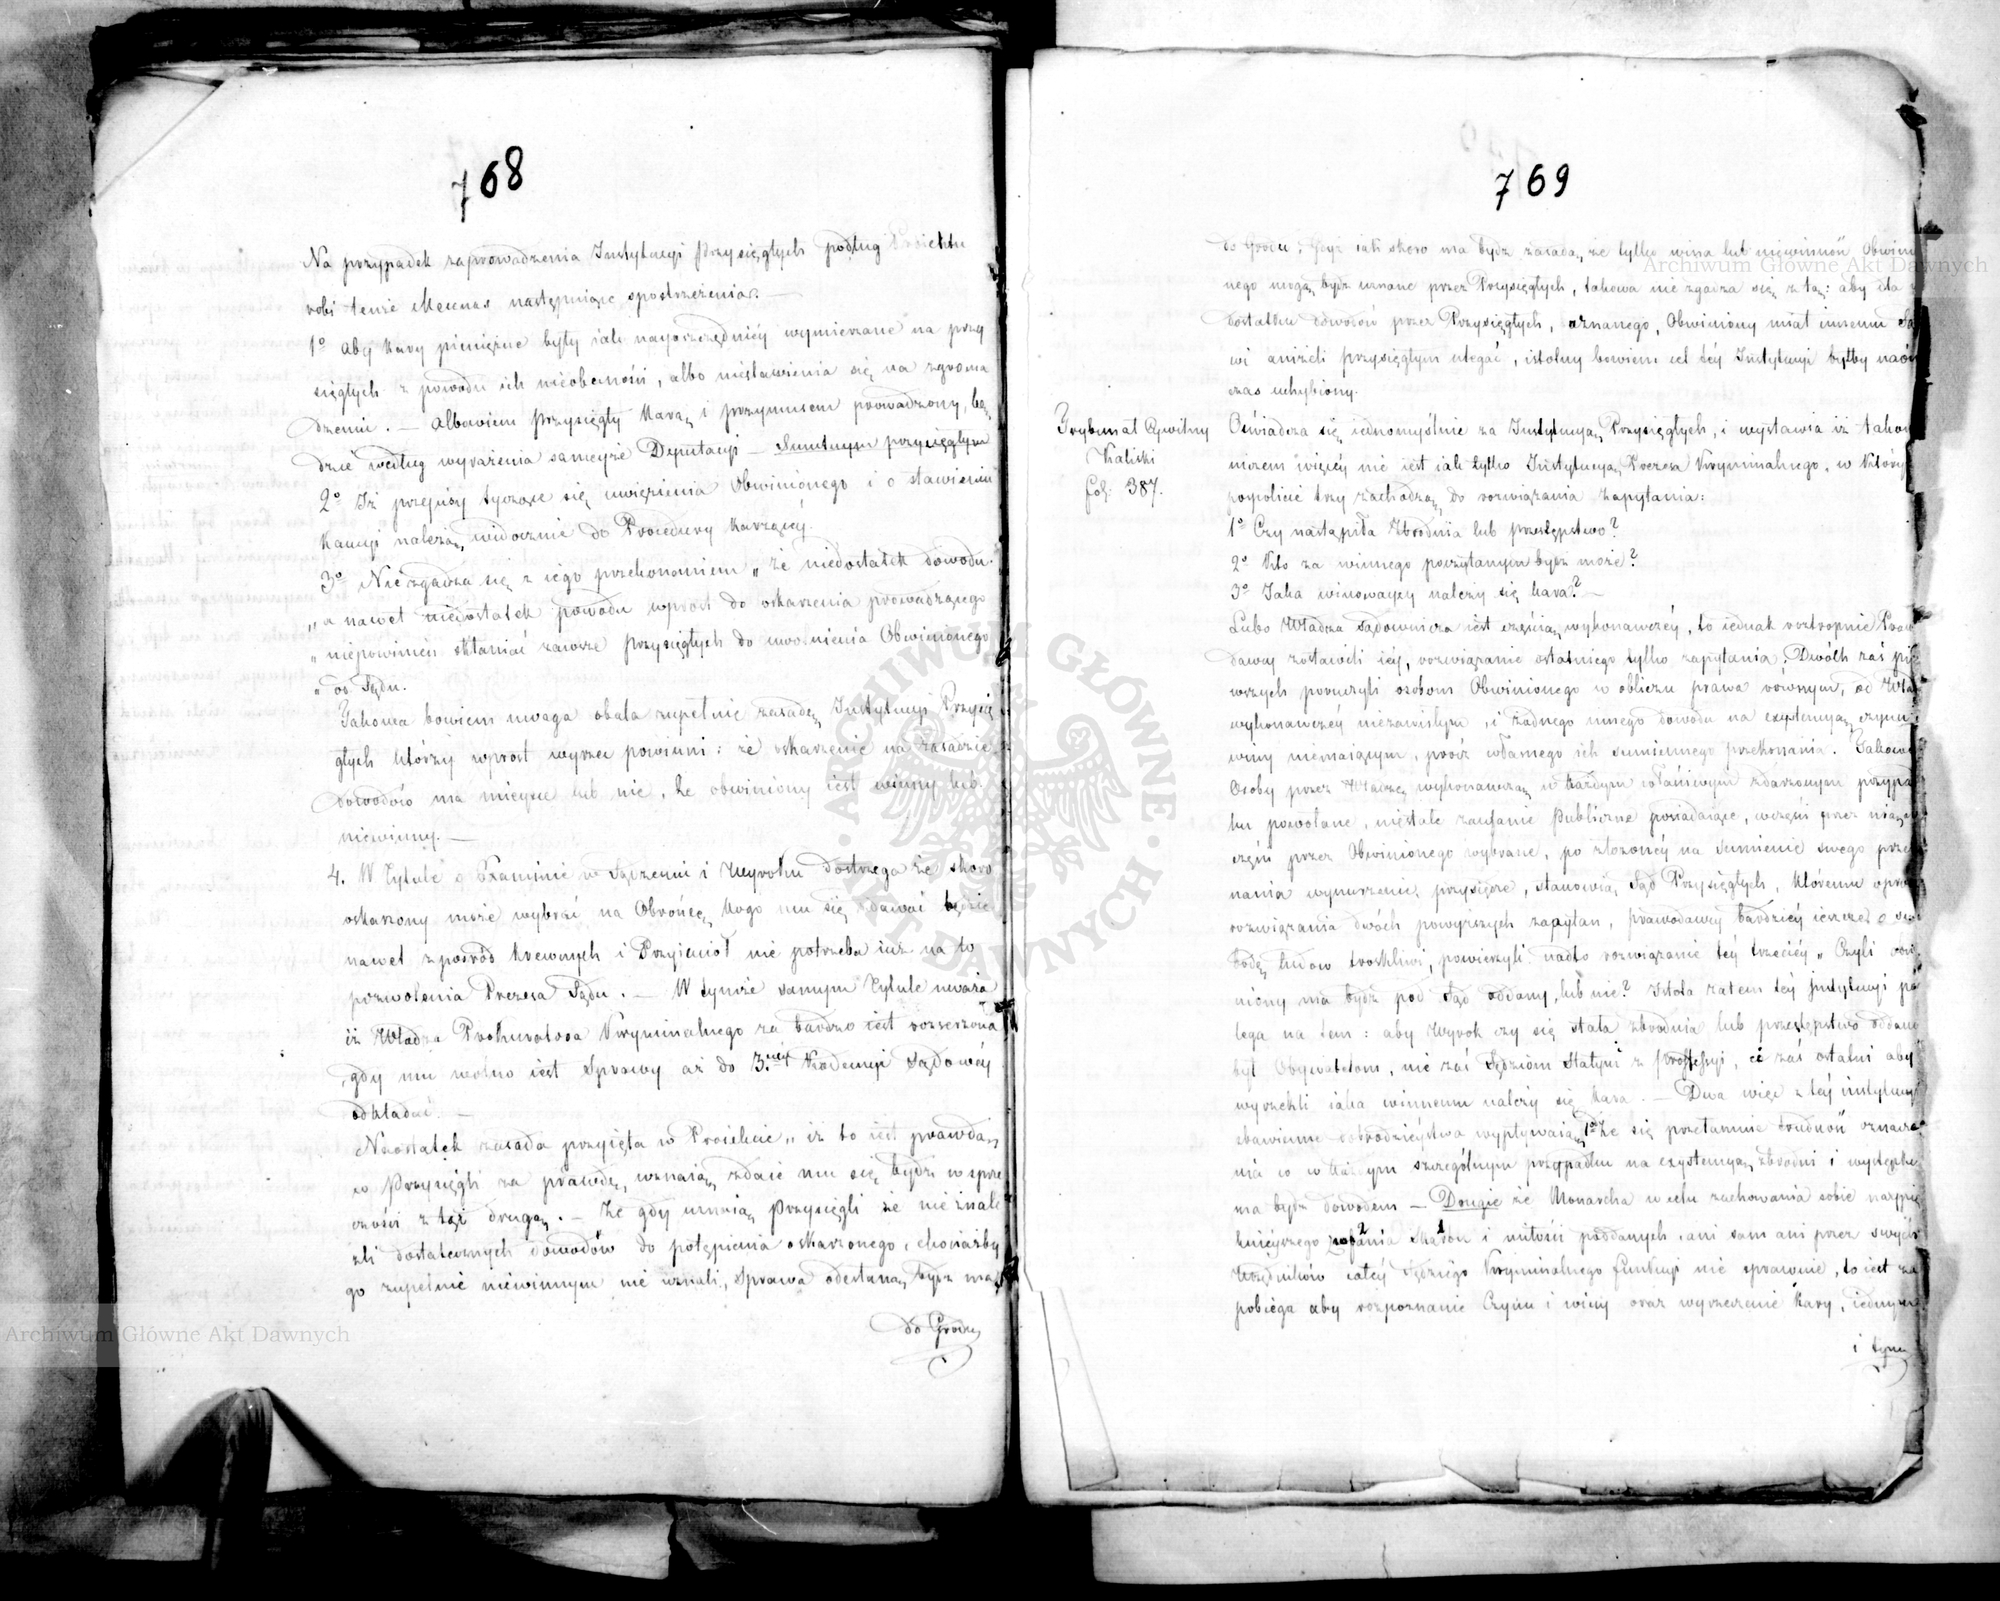 768
Na przypadek zaprowadzenia Instytucyi Przysięgłych podług Proiektu
robi tenże Mecenas następuiące spostrzeżenia. —
1º Aby kary pieniężne były iak nayoszczędniéy wymierzane na przy
sięgłych z powodu ich nieobecności, albo niestawienia się na zgroma
dzeniu. — Albowiem Przysięgły karą i przymusem prowadzony, bę
dzie według wyrażenia samejże Deputacyi — Smutnym przysięgłym
2º Iż przepisy tyczące się uwięzienia Obwinionego i o stawieniu
Kaucyi należą widocznie do Procedury karzącéy.
3º Niezgadza się z iego przekonaniem „ że niedostatek dowodu
„ a nawet niedostatek powodu wprost do oskarżenia prowadzącego
„ niepowinien skłaniać zawsze przysięgłych do uwolnienia Obwinionego
„ od Sądu.
Takowa bowiem uwaga obala zupełnie zasadę Instytucyi Przysię
głych którzy wprost wyrzec powinni: że oskarżenie na zasadzie
dowodów ma mieysce lub nie, że obwiniony iest winny lub
niewinny. —
4. W Tytule o Examinie w Sądzeniu i Wyroku dostrzega że skoro
oskarżony może wybrać na Obrońcę kogo mu się zdawać będzie
nawet z pośród krewnych i Przyiaciół nie potrzeba iuż na to
pozwolenia Prezesa Sądu. — W tymże samym Tytule uważa
iż Władza Prokuratora Kryminalnego za bardzo iest rozszerzona
gdy mu wolno iest Sprawy aż do 3.ciéy Kadencyi Sądowéy
odkładać. —
Naostatek zasada przyięta w Proiekcie „ iż to iest prawdą,
co Przysięgli za prawdę uznaią, zdaie mu się bydź w sprze
czności z tą drugą. — Że gdy uznaią Przysięgli że nie znale
źli dostatecznych dowodów do potępienia oskarżonego, chociażby
go zupełnie niewinnym nie uznali, sprawa odesłaną bydź ma
do Grodu
769
do Grodu; Gdyż iak skoro ma bydź zasadą, że tylko wina lub niewinność Obwinio
nego mogą bydź uznane przez Przysięgłych, takowa nie zgadza się z tą: aby dla
dostatku dowodów przez Przysięgłych, uznanego, Obwiniony miał innemu Są
wi aniżeli przysięgłym ulegać, istotny bowiem cel téy Instytucyi byłby naów
czas uchybiony.
Trybunał Cywilny
Kaliski
fol: 387.
Oświadcza się iednomyślnie za Instytucyą Przysięgłych, i wystawia iż takow
niczem więcéy nie iest iak tylko Instytucyą Processu Kryminalnego, w któré
pospolicie trzy zachodzą do rozwiązania zapytania:
1º Czy nastąpiła Zbrodnia lub przestępstwo?
2º Kto za winnego poczytanym bydź może?
3º Jaka winowaycy należy się kara? —
Lubo Władza sądownicza iest częścią wykonawczéy, to iednak roztropnie Prawo
dawcy zostawili iéy, rozwiązanie ostatniego tylko zapytania. Dwóch zaś pie
rwszych poruczyli osobom Obwinionego w obliczu prawa równym, od Wła
wykonawczéy niezawisłym, i żadnego innego dowodu na exystencyą czynu
winy niemaiącym, prócz własnego ich sumiennego przekonania. Takowe
Osoby przez Władzę wykonawczą w każdym właściwym zdarzonym przypad
ku powołane, niestałe zaufanie Publiczne posiadaiące, w części przez nią
części przez Obwinionego wybrane, po złożonéy na sumienie swego prze
nania wynurzenie przysiędze, stanowią Sąd Przysięgłych, któremu oprócz
rozwiązania dwóch powyższych zapytań, prawodawcy bardziéy ieszcze o swo
bodę ludów troskliwi, powierzyli nadto rozwiązanie téy trzeciéy „ Czyli obwi
niony ma bydź pod Sąd oddany, lub nie? Istota zatem téy Instytucyi po
lega na tem: aby Wyrok czy się stała zbrodnia lub przestępstwo oddany
był Obywatelom, nie zaś Sędziom Stałym z Professyi, ci zaś ostatni aby
wyrzekli iaka winnemu należy się kara. — Dwa więc z téy instytucyi
zbawienne dobrodzieystwa wypływaią, 1º Że się przełamie trudność oznacze
nia co w każdym szczególnym przypadku na exystencyą zbrodni i występku
ma bydź dowodem — Drugie że Monarcha w celu zachowania sobie naypię
knieyszego i miłości poddanych, ani sam ani przez swych
Urzędników całéy Sędziego Kryminalnego funkcyi nie sprawuie, to iest za
pobiega aby rozpoznanie Czynu i winy oraz wyrzeczenie kary, iednym
i tym
Archiwum Główne Akt Dawnych
Archiwum Główne Akt Dawnych
ARCHIWUM GŁÓWNE AKT DAWNYCH